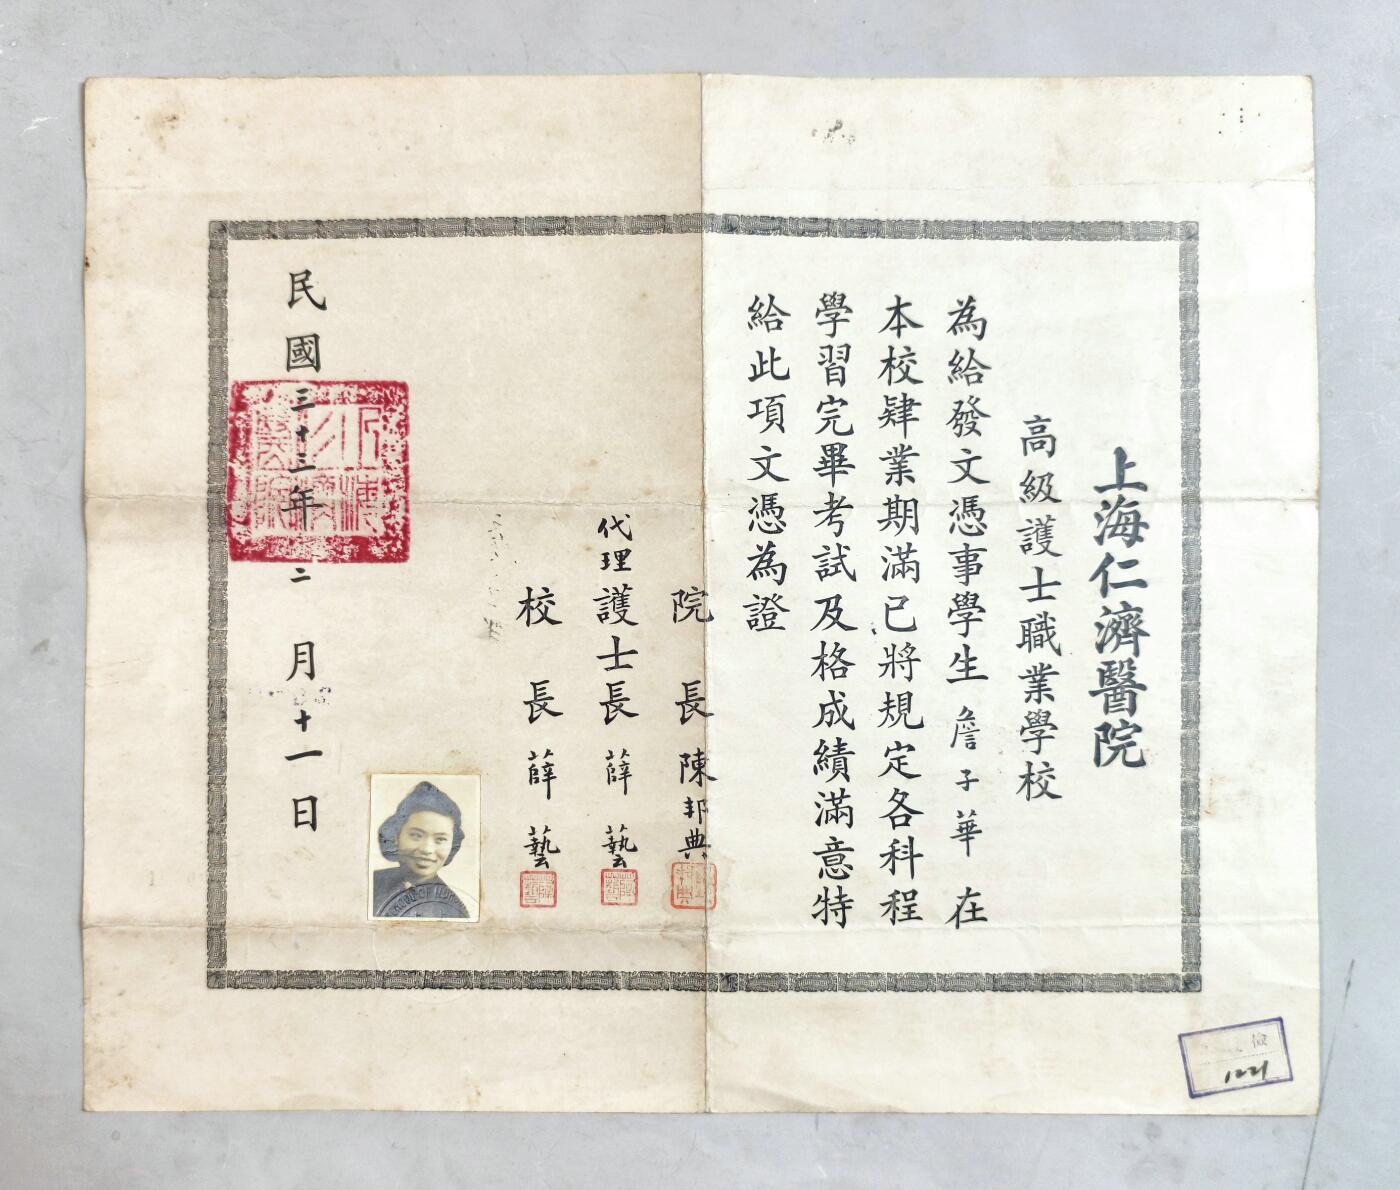 上海仁濟醫院
高級護士職業學校
為給發文憑事學生詹子華在
本校肄業期滿已將規定各科程
學習完畢考試及格成績滿意特
給此項文憑為證
院長陳邦典
代理護士長薛藝
校長薛藝
民國三十三年二月十一日
SCHOOL OF NUR
1221